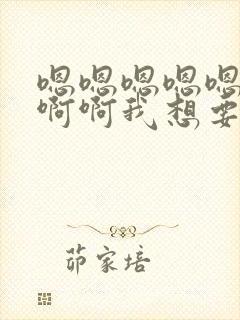 嗯嗯嗯嗯嗯
啊啊我想要
茆家培